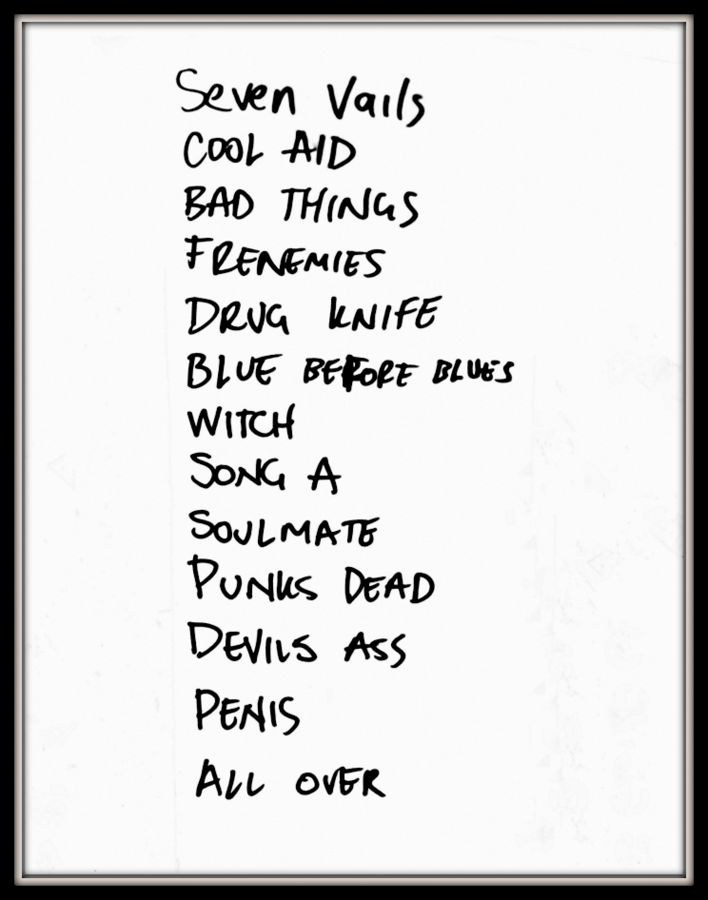 Seven Vails
COOL AID
BAD THINGS
FRENEMIES
DRUG KNIFE
BLUE BEFORE BLUES
WITCH
SONG A
SOULMATE
PUNKS DEAD
DEVILS ASS
PENIS
ALL OVER